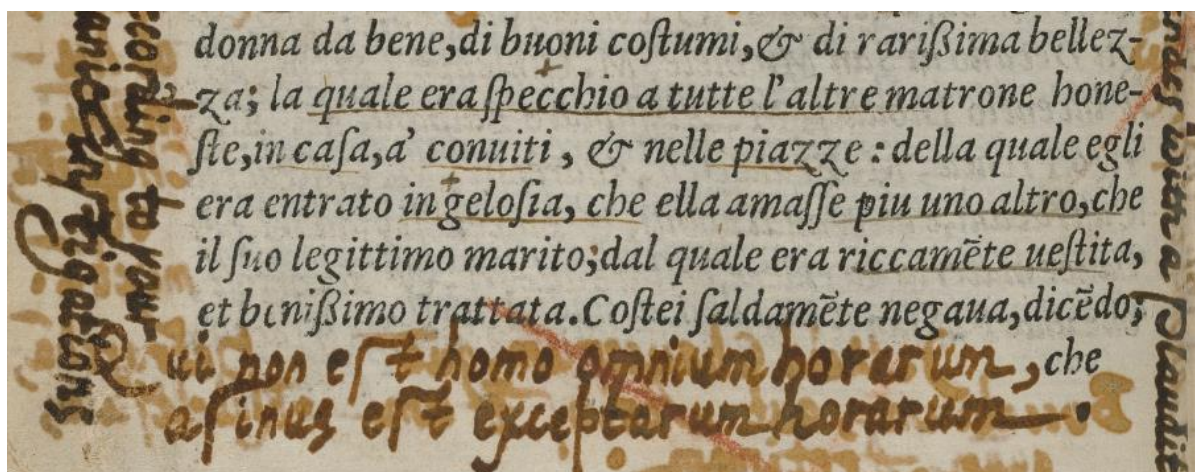 donna da bene, di buoni coſtumi, & di rariſſima bellez-
za; la quale era ſpecchio a tutte l'altre matrone hone-
ſte, in caſa, a' conuiti, & nelle piazze: della quale egli
era entrato in geloſia, che ella amaſſe piu uno altro, che
il ſuo legittimo marito; dal quale era riccamēte ueſtita,
et beniſſimo trattata. Coſtei ſaldamēte negaua, dicēdo;
che
ui non eſt homo omnium horarum,
aſinus eſt exceptarum horarum.
ccording to your